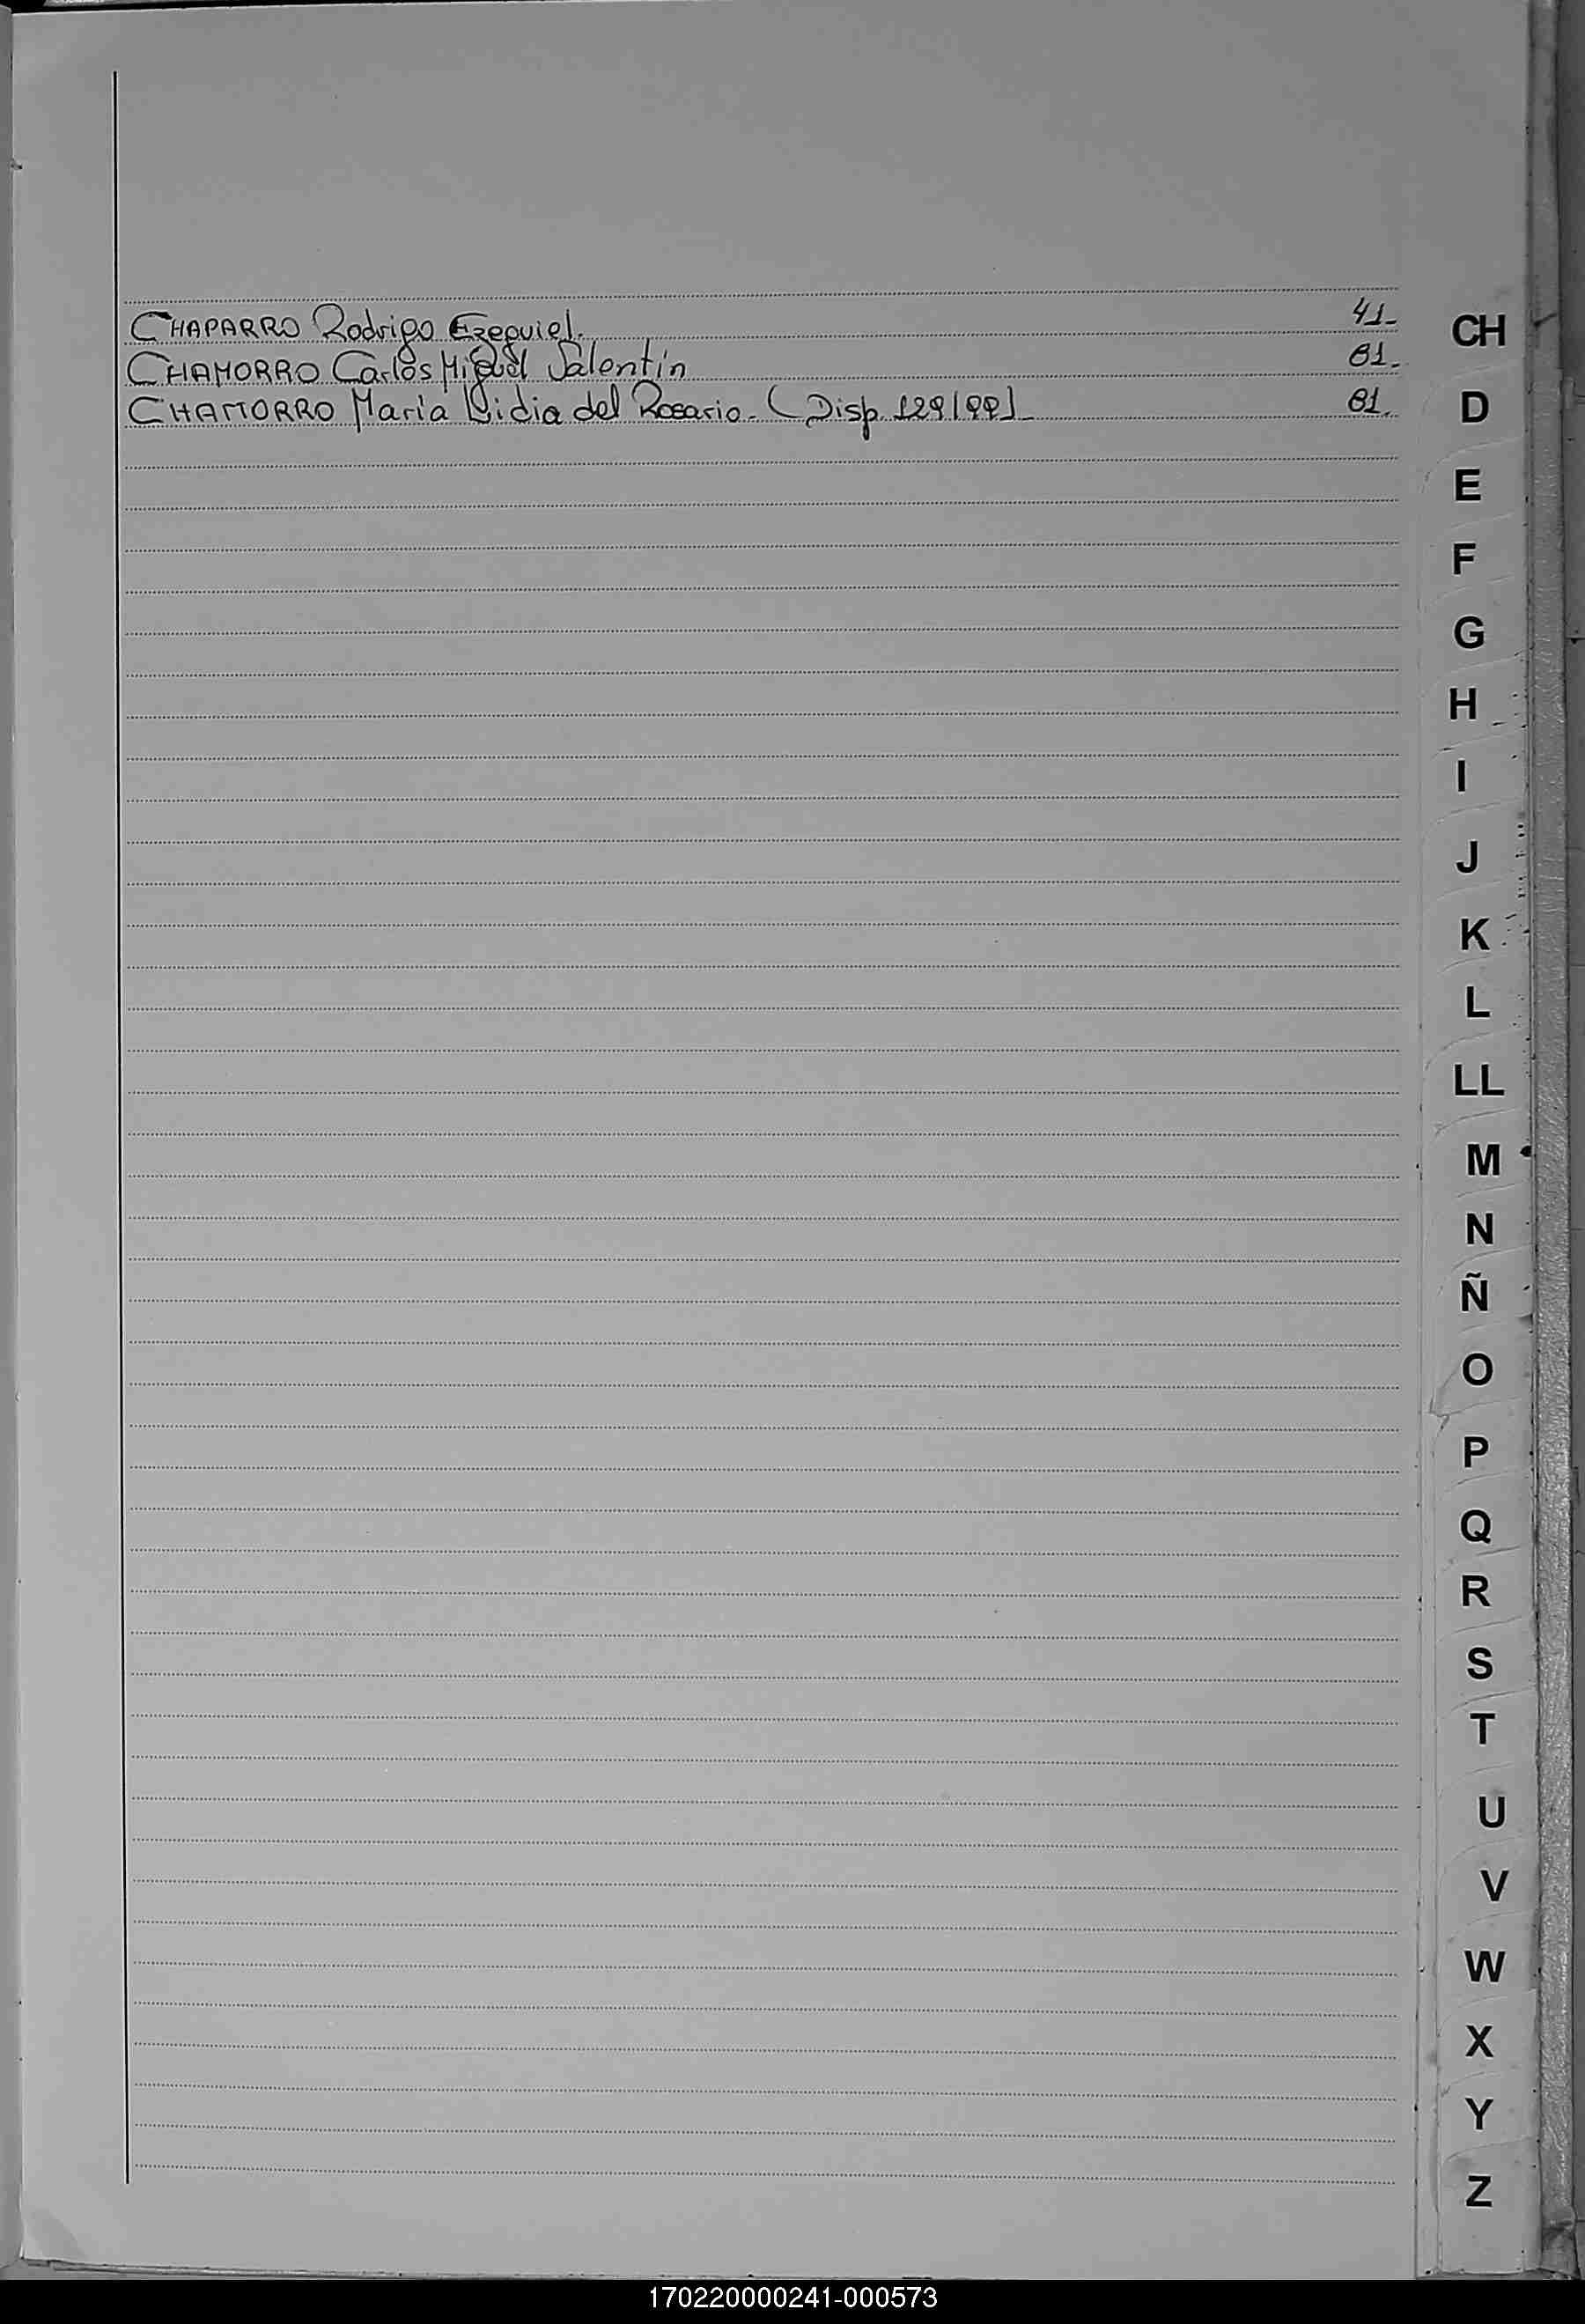 CHAPARRO Rodrigo Ezequiel. 41-
CHAMORRO Carlos Miguel Valentín 81.
CHAMORRO María Lidia del Rosario. (Disp. 129/99) 81.
CH
D
E
F
G
H
I
J
K
L
LL
M
N
Ñ
O
P
Q
R
S
T
U
V
W
X
Y
Z
170220000241-000573